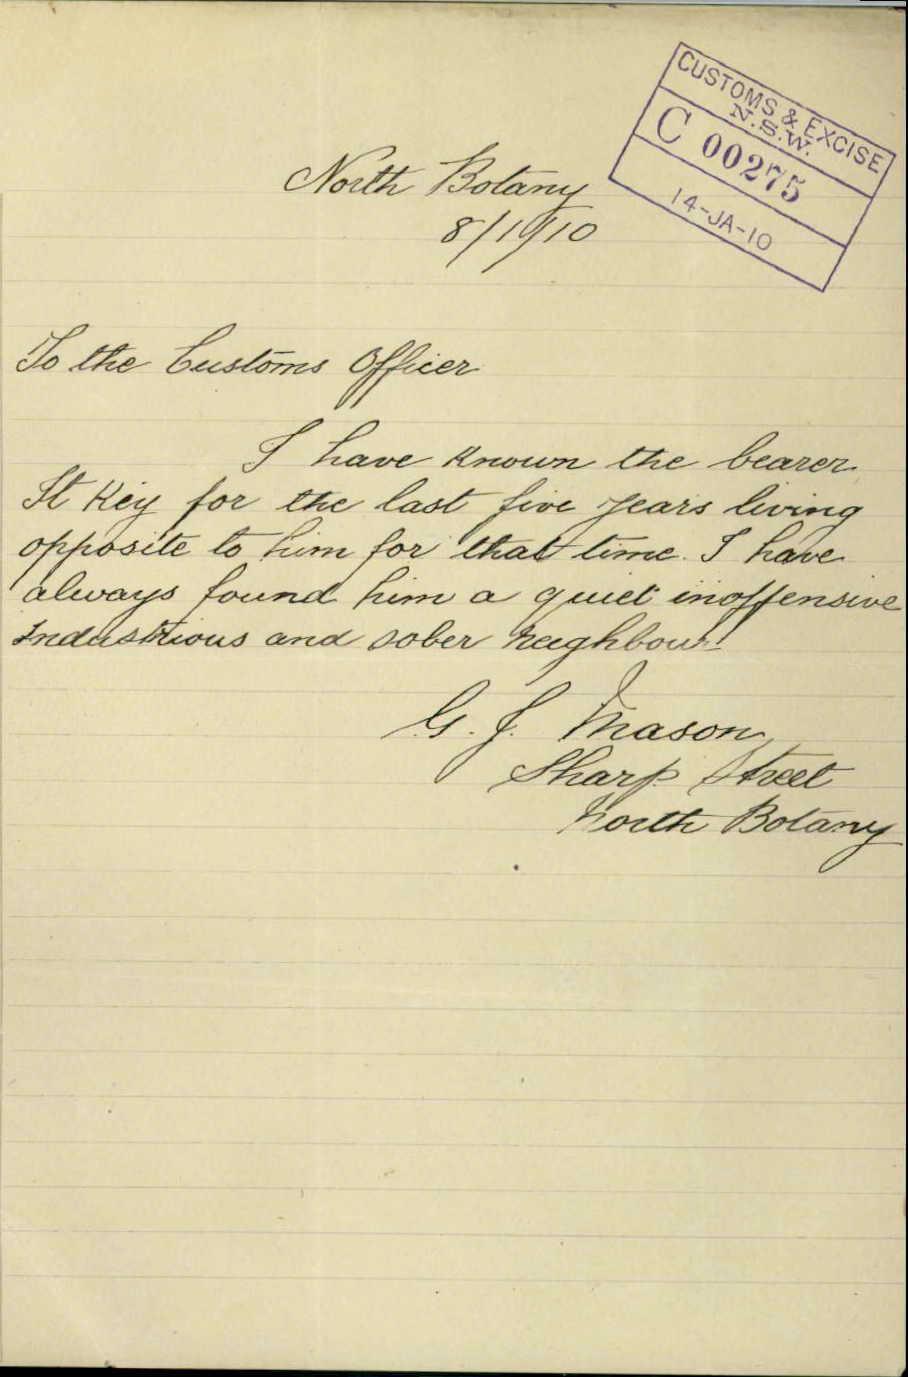 CUSTOMS & EXCISE
N.S.W.
C 00275
14-JA-10
North Botany
8/1/10
To the Customs Officer
I have known the bearer
St Key for the last five years living
opposite to him for that time. I have
always found him a quiet inoffensive
industrious and sober neighbour.
G. J. Mason
Sharp Street
North Botany